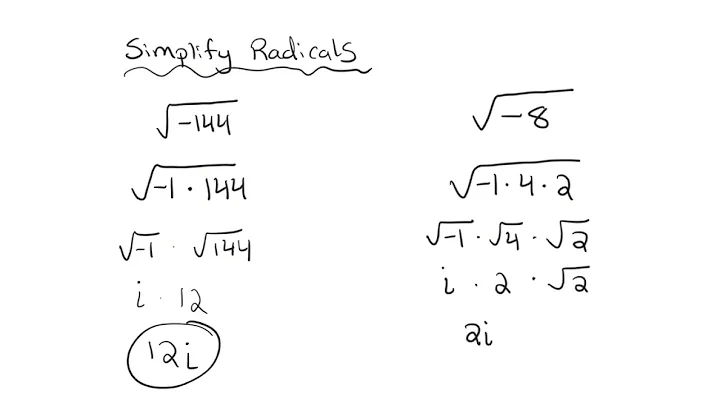 Simplify Radicals
√-144
√-1 · 144
√-1 · √144
i · 12
12i
√-8
√-1 · 4 · 2
√-1 · √4 · √2
i · 2 · √2
2i